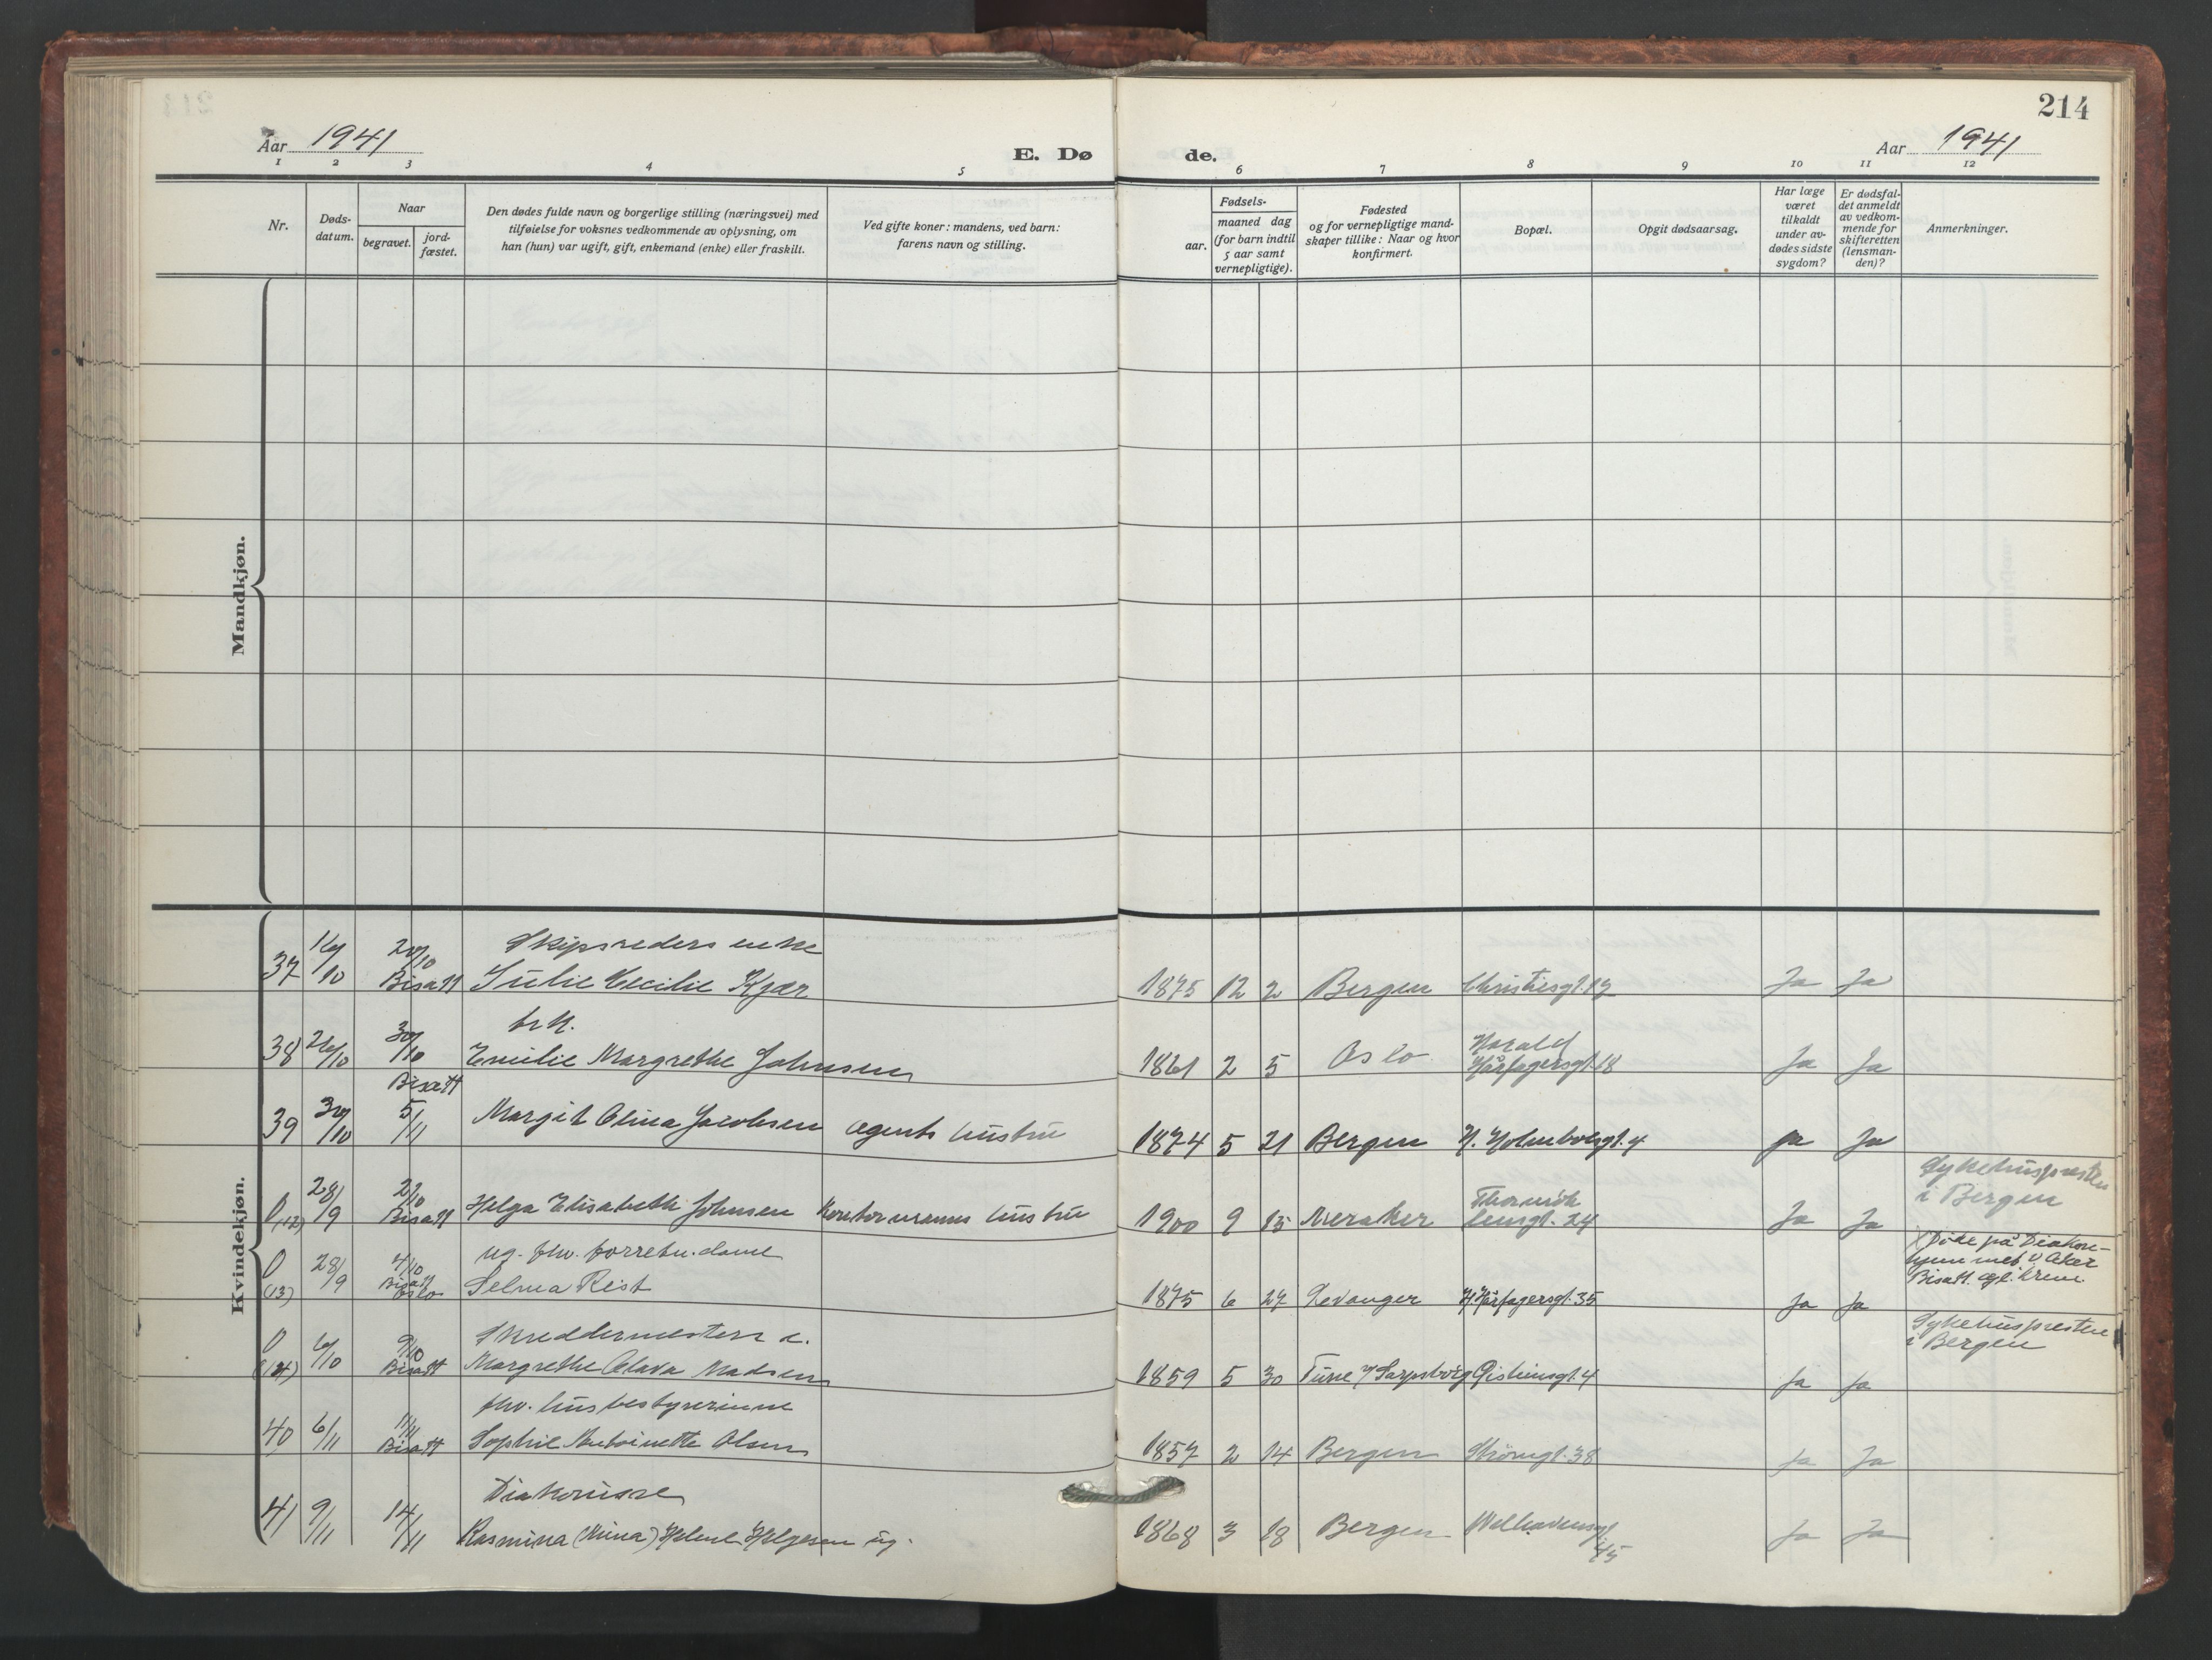 214
Aar 1941
E. Dø
de.
Aar 1941
1 2 3 4 5 6 7 8 9 10 11 12
Nr.
Døds-
datum.
Naar
begravet.
jord-
fæstet.
Den dødes fulde navn og borgerlige stilling (næringsvei) med
tilføielse for voksnes vedkommende av oplysning, om
han (hun) var ugift, gift, enkemand (enke) eller fraskilt.
Ved gifte koner: mandens, ved barn:
farens navn og stilling.
Fødsels-
aar.
maaned dag
(for barn indtil
5 aar samt
vernepligtige).
Fødested
og for vernepligtige mand-
skaper tillike: Naar og hvor
konfirmert.
Bopæl.
Opgit dødsaarsag.
Har læge
været
tilkaldt
under av-
dødes sidste
sygdom?
Er dødsfal-
det anmeldt
av vedkom-
mende for
skifteretten
(lensman-
den)?
Anmerkninger.
Mandkjøn.
Kvindekjøn.
Skipsreders enke
37 16/10 20/10 Bisatt Julie Cecilie Kjær 1875 12 2 Bergen Christiesgt. Ja Ja
frk.
38 26/10 30/10 Bisatt Emilie Margrethe Johnsen 1861 2 5 Oslo Harald
Hårfagersgt. 18 Ja Ja
39 30/10 5/11 Margit Olina Jacobsen agents hustru 1874 5 21 Bergen H. Holmboesgt. 4 Ja Ja
Sykehuspresten
i Bergen
0 (12) 28/9 2/10 Bisatt Helga Elisabeth Johnsen Kontormanns hustru 1900 9 15 Meraker 24 Ja Ja
ug. fhv. forretn. dame
0 (13) 28/9 4/10 Bisatt Oslo Selma Reist 1875 6 27 Levanger H. Hårfagersgt. 35 Ja Ja
Døde på Diakon-
hjemmet V. Aker
Bisatt og krem.
Skreddermesters e.
0 (14) 6/10 9/10 Bisatt Margrethe Olava Madsen 1859 5 30 Tune / Sarpsborg 4 Ja Ja
Sykehuspresten
i Bergen
fhv. husbestyrerinne
40 6/11 11/11 Bisatt Sophie Antoinette Olsen 1857 2 14 Bergen Strømgt. 38 Ja Ja
Diakonisse
41 9/11 14/11 Rasmina (Mina) Helene Helgesen ug. 1868 3 18 Bergen Welhavensgt.
45 Ja Ja